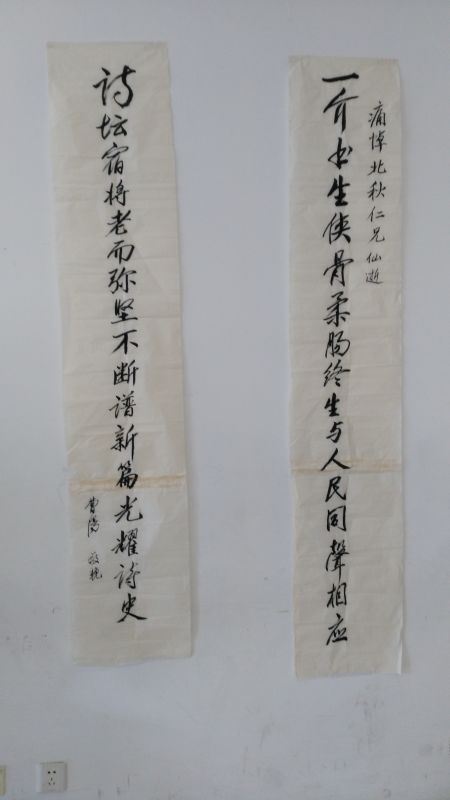 痛悼北秋仁兄仙逝
一介书生侠骨柔肠终生与人民同聲相应
诗坛宿将老而弥坚不断谱新篇光耀诗史
曹阳 敬挽